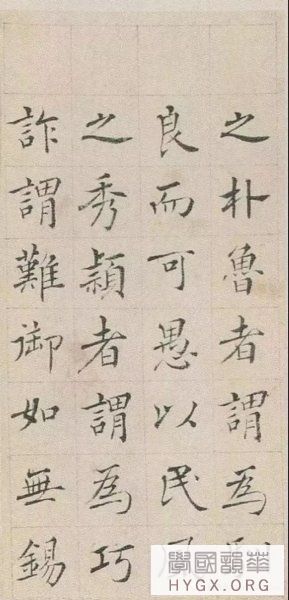 之朴魯者謂為
良而可愚以民
之秀穎者謂為巧
詐謂難御如無錫
華韻國學
HYGX.ORG